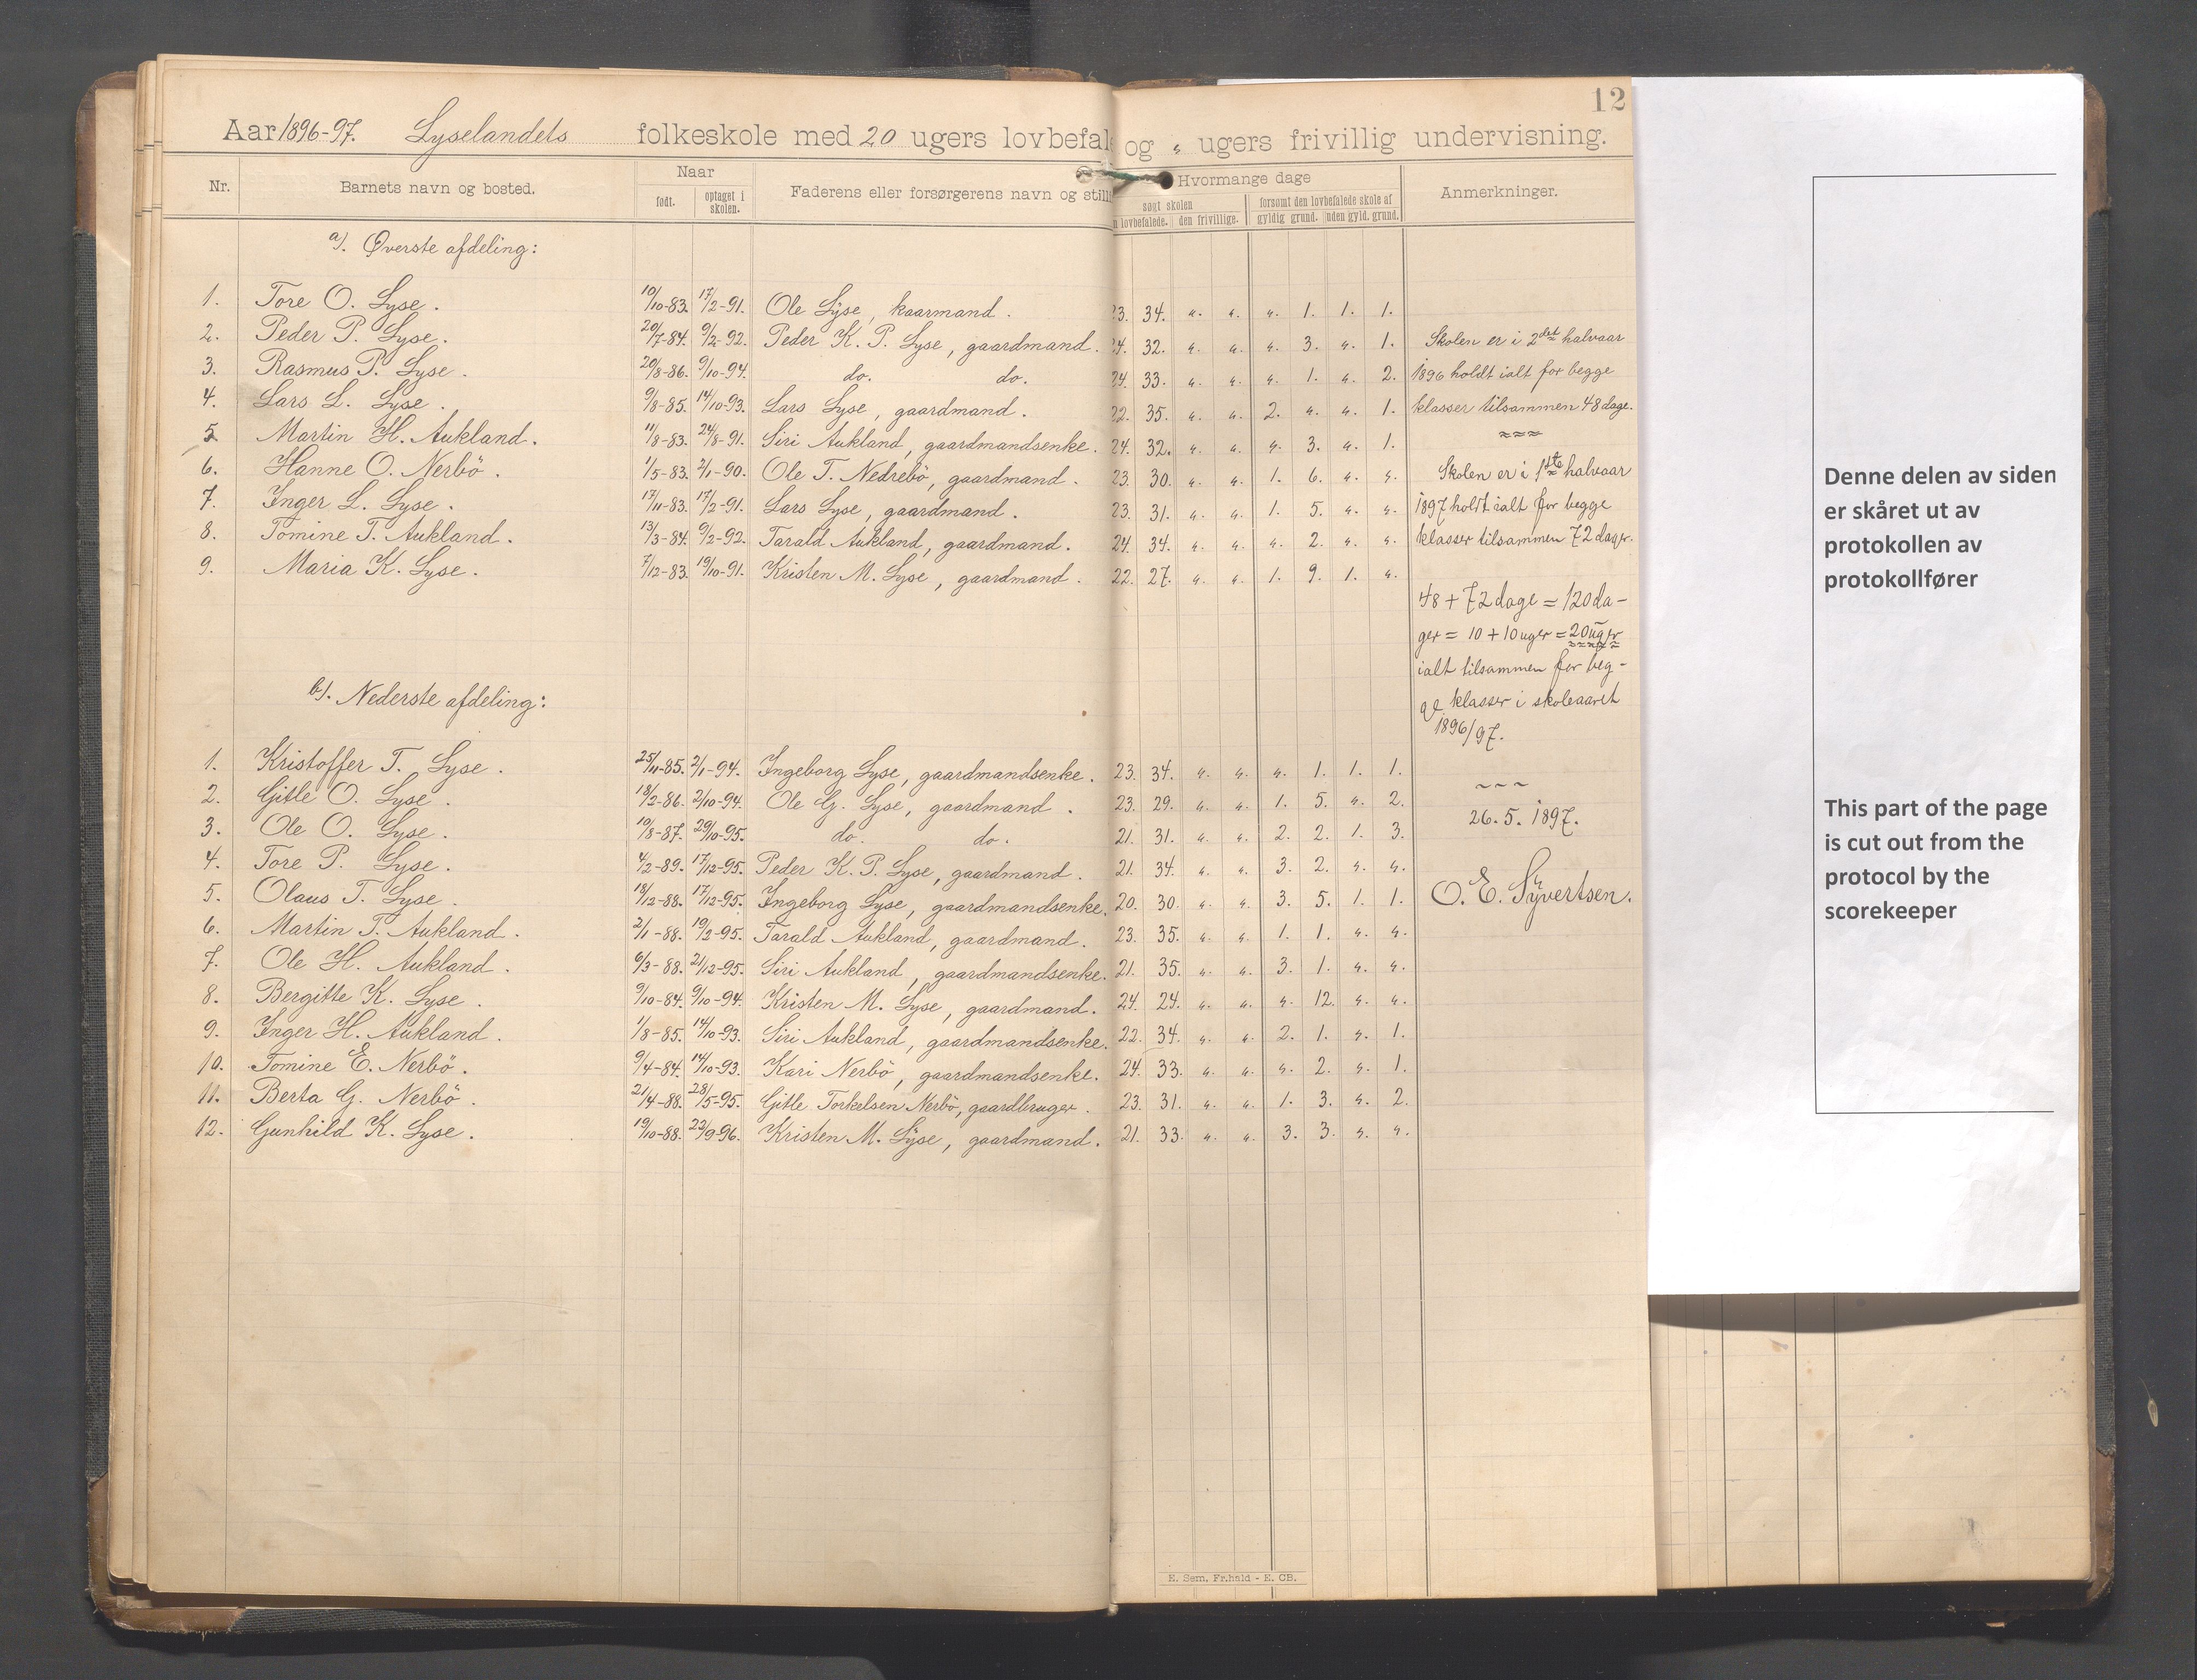 12
Aar 1896-97. Lyselandets folkeskole med 20 ugers lovbefal og " ugers frivillig undervisning.
Nr. Barnets navn og bosted. Naar født. optaget i skolen. Faderens eller forsørgerens navn og still Hvormange dage søgt skolen n lovbefalede. den frivillige. forsømt den lovbefalede skole af gyldig grund. uden gyld. grund. Anmerkninger.
a). Øverste afdeling:
1. Tore O. Lyse. 10/10-83. 17/2-91. Ole Lÿse, kaarmand. 23. 34. " " " 1. 1. 1.
2. Peder P. Lyse. 20/7-84. 9/2-92. Peder K. P. Lyse, gaardmand. 24. 32. " " " 3. " 1.
3. Rasmus P. Lyse. 20/8-86. 9/10-94. do. do. 24. 33. " " " 1. " 2.
4. Lars L. Lyse. 9/8-85. 14/10-93. Lars Lyse, gaardmand. 22. 35. " " 2. " " 1.
5 Martin H. Aukland. 11/8-83. 24/8-91. Siri Aukland, gaardmandsenke. 24. 32. " " " 3. " 1.
6. Hanne O. Nerbö. 1/5-83. 2/1-90. Ole T. Nedrebö, gaardmand. 23. 30. " " 1. 6. " "
7. Inger L. Lyse. 17/11-83. 17/2-91. Lars Lyse, gaardmand. 23. 31. " " 1. 5. " "
8. Tomine T. Aukland. 13/3-84. 9/2-92. Tarald Aukland, gaardmand. 24. 34. " " " 2. " "
9. Maria K. Lyse. 7/12-83. 19/10-91. Kristen M. Lyse, gaardmand. 22. 27. " " 1. 9. 1. "
Skolen er i 2det halvaar
1896 holdt ialt for begge
klasser tilsammen 48 dage.
Skolen er i 1ste halvaar
1897 holdt ialt for begge
klasser tilsammen 72 dager.
48 + 72 dage = 120 da-
ger = 10 + 10 uger = 20 uger
ialt tilsammen for beg-
ge klasser i skoleaaret
1896/97.
26. 5. 1897.
O. E. Syvertsen.
b). Nederste afdeling:
1. Kristoffer T. Lyse. 25/11-85. 2/1-94. Ingeborg Lyse, gaardmandsenke. 23. 34. " " " 1. 1. 1.
2. Gitle O. Lyse. 18/2-86. 2/10-94. Ole G. Lyse, gaardmand. 23. 29. " " 1. 5. " 2.
3. Ole O. Lyse. 10/8-87. 29/10-95. do. do. 21. 31. " " 2. 2. 1. 3.
4. Tore P. Lyse. 4/2-89. 17/12-95. Peder K. P. Lyse, gaardmand. 21. 34. " " 3. 2. " "
5. Olaus T. Lyse. 18/12-88. 17/12-95. Ingeborg Lyse, gaardmandsenke. 20. 30. " " 3. 5. 1. 1.
6. Martin T. Aukland. 2/1-88. 19/2-95. Tarald Aukland, gaardmand. 23. 35. " " 1. 1. " "
7. Ole H. Aukland. 6/3-88. 21/12-95. Siri Aukland, gaardmandsenke. 21. 35. " " 3. 1. " "
8. Bergitte K. Lyse. 9/10-84. 9/10-94. Kristen M. Lyse, gaardmand. 24. 24. " " " 12. " "
9. Inger H. Aukland. 1/8-85. 14/10-93. Siri Aukland, gaardmandsenke. 22. 34. " " 2. 1. " 1.
10. Tomine E. Nerbö. 9/4-84. 14/10-93. Kari Nerbö, gaardmandsenke. 24. 33. " " " 2. " 1.
11. Berta G. Nerbö. 21/4-88. 28/5-95. Gitle Torkelsen Nerbö, gaardbruger. 23. 31. " " 1. 3. " 2.
12. Gunhild K. Lyse. 19/10-88. 22/9-96. Kristen M. Lÿse, gaardmand. 21. 33. " " 3. 3. " "
E. Sem, Fr.hald - E. CB.
Denne delen av siden
er skåret ut av
protokollen av
protokollfører
This part of the page
is cut out from the
protocol by the
scorekeeper